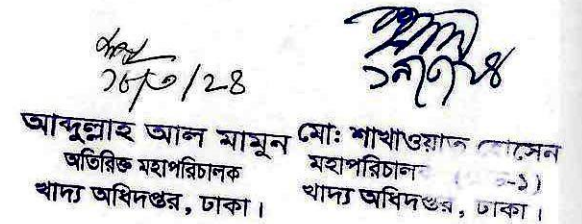 ১৮/৩/২৪
আব্দুল্লাহ আল মামুন
অতিরিক্ত মহাপরিচালক
খাদ্য অধিদপ্তর, ঢাকা।
মো: শাখাওয়াত হোসেন
মহাপরিচালক
খাদ্য অধিদপ্তর, ঢাকা।